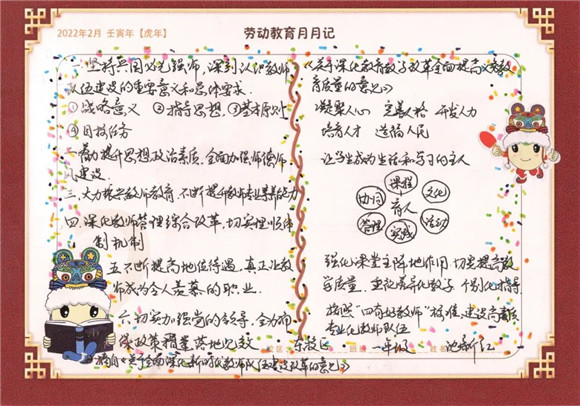 2022年2月 壬寅年【虎年】
劳动教育月月记
一.坚持兴国必先强师，深刻认识教师
队伍建设的重要意义和总体要求.
①战略意义 ②指导思想 ③基本原则
④目标任务
二.着力提升思想政治素质，全面加强师德师
风建设.
三.大力振兴教师教育.不断提升教师专业素质能力
四.深化教师管理综合改革，切实理顺体
制机制
五.不断提高地位待遇.真正让教
师成为令人羡慕的职业.
六.切实加强党的领导，全力确
保政策举措落地见效
摘自《关于全面深化新时代教师队伍建设改革的意见》
《关于深化教育教学改革全面提高义务教
育质量的意见》
凝聚人心 完善人格 开发人力
培育人才 造福人民
让学生成为生活和学习的主人
课程
协同 文化
育人
管理 活动
实践
强化课堂主阵地作用 切实提高教
学质量. 重视差异化教学 个别化指导
按照"四有好教师"标准，建设高素质
专业化教师队伍
东校区 一年级